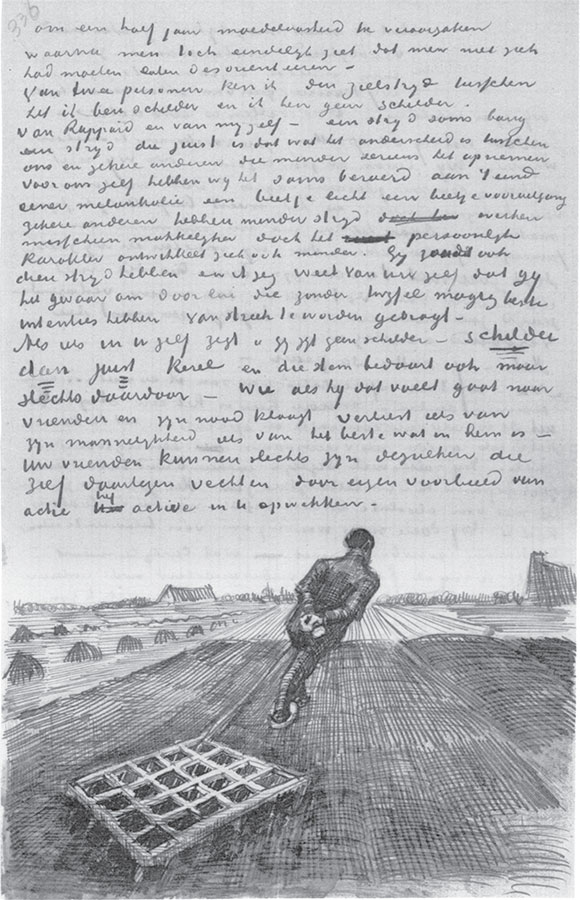 336
om een half jaar moedeloosheid te veroorzaken
waarna men toch eindelijk ziet dat men niet zich
had moeten laten desorienteeren –
Van twee personen ken ik den zielstrijd tusschen
het ik ben schilder en ik ben geen schilder.
Van Rappard en van mijzelf – een strijd soms bang
een strijd die juist is dat wat het onderscheid is tusschen
ons en zekere anderen die minder serieus het opnemen
voor ons zelf hebben wij het soms beroerd aan 't eind
eener melankolie een beetje licht een beetje vooruitgang
zekere anderen hebben minder strijd werken
misschien makkelijker doch het persoonlijk
karakter ontwikkelt zich ook minder. Gij zoudt ook
dien strijd hebben en ik zeg weet van uw zelf dat gij
het gevaar om door lui die zonder twijfel magnifieke
intenties hebben van streek te worden gebragt –
Als iets in U zelf zegt „gij zijt geen schilder – schilder
dan juist kerel en die stem bedaart ook maar
slechts daardoor – wie als hij dat voelt gaat naar
vrienden en zijn nood klaagt verliest iets van
zijn mannelijkheid iets van het beste wat in hem is –
Uw vrienden kunnen slechts zijn degenen die
zelf daartegen vechten door eigen voorbeeld van
actie het active in U opwekken –